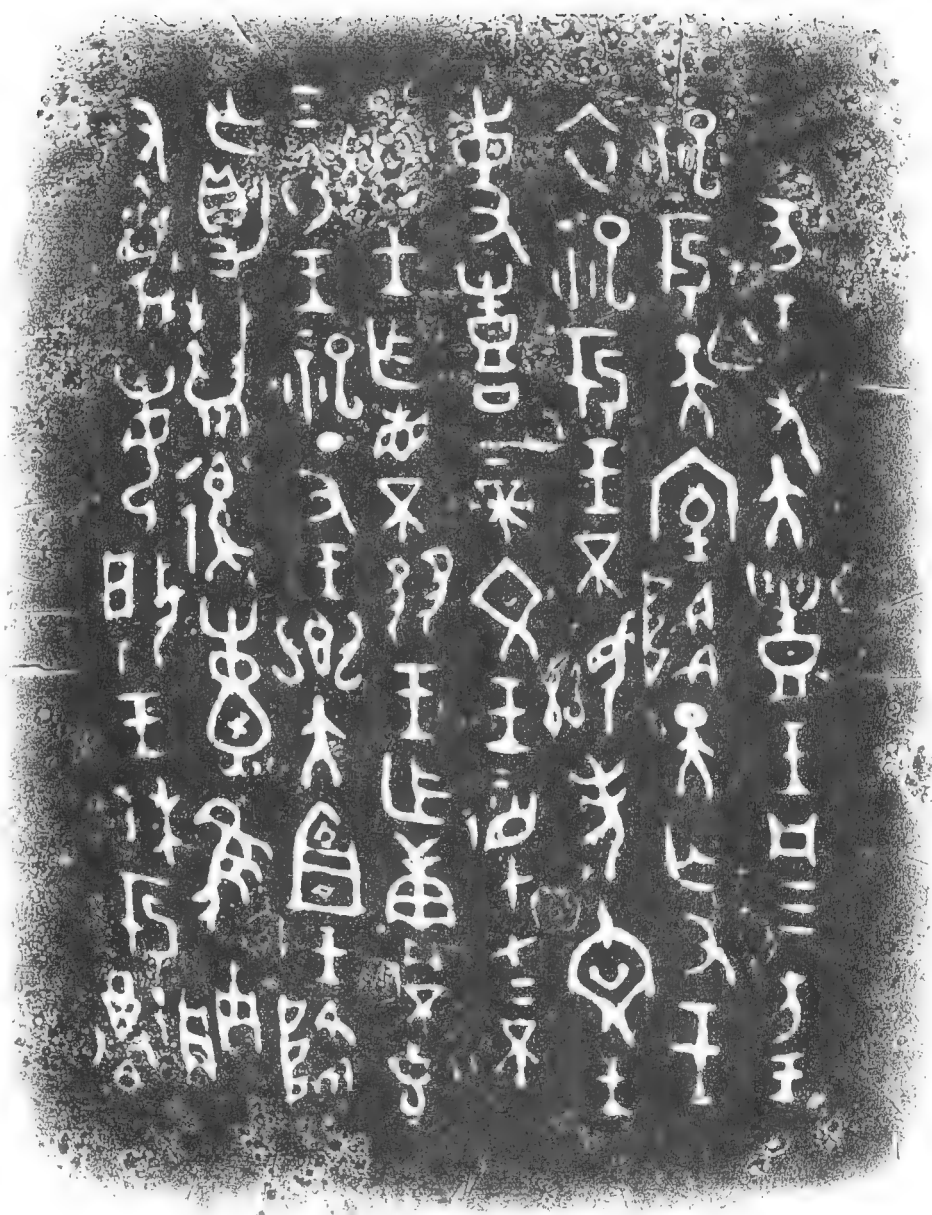 乙亥王又大豊王凡三方王
祀于天室降天亡又王
衣祀于王不顯考文王
事喜上帝文王德才上不
顯王乍省不𢑚王乍庸不克
三衣王祀丁丑王鄉大宜王降
亡爵復隹朕
又蔑每揚王休于尊